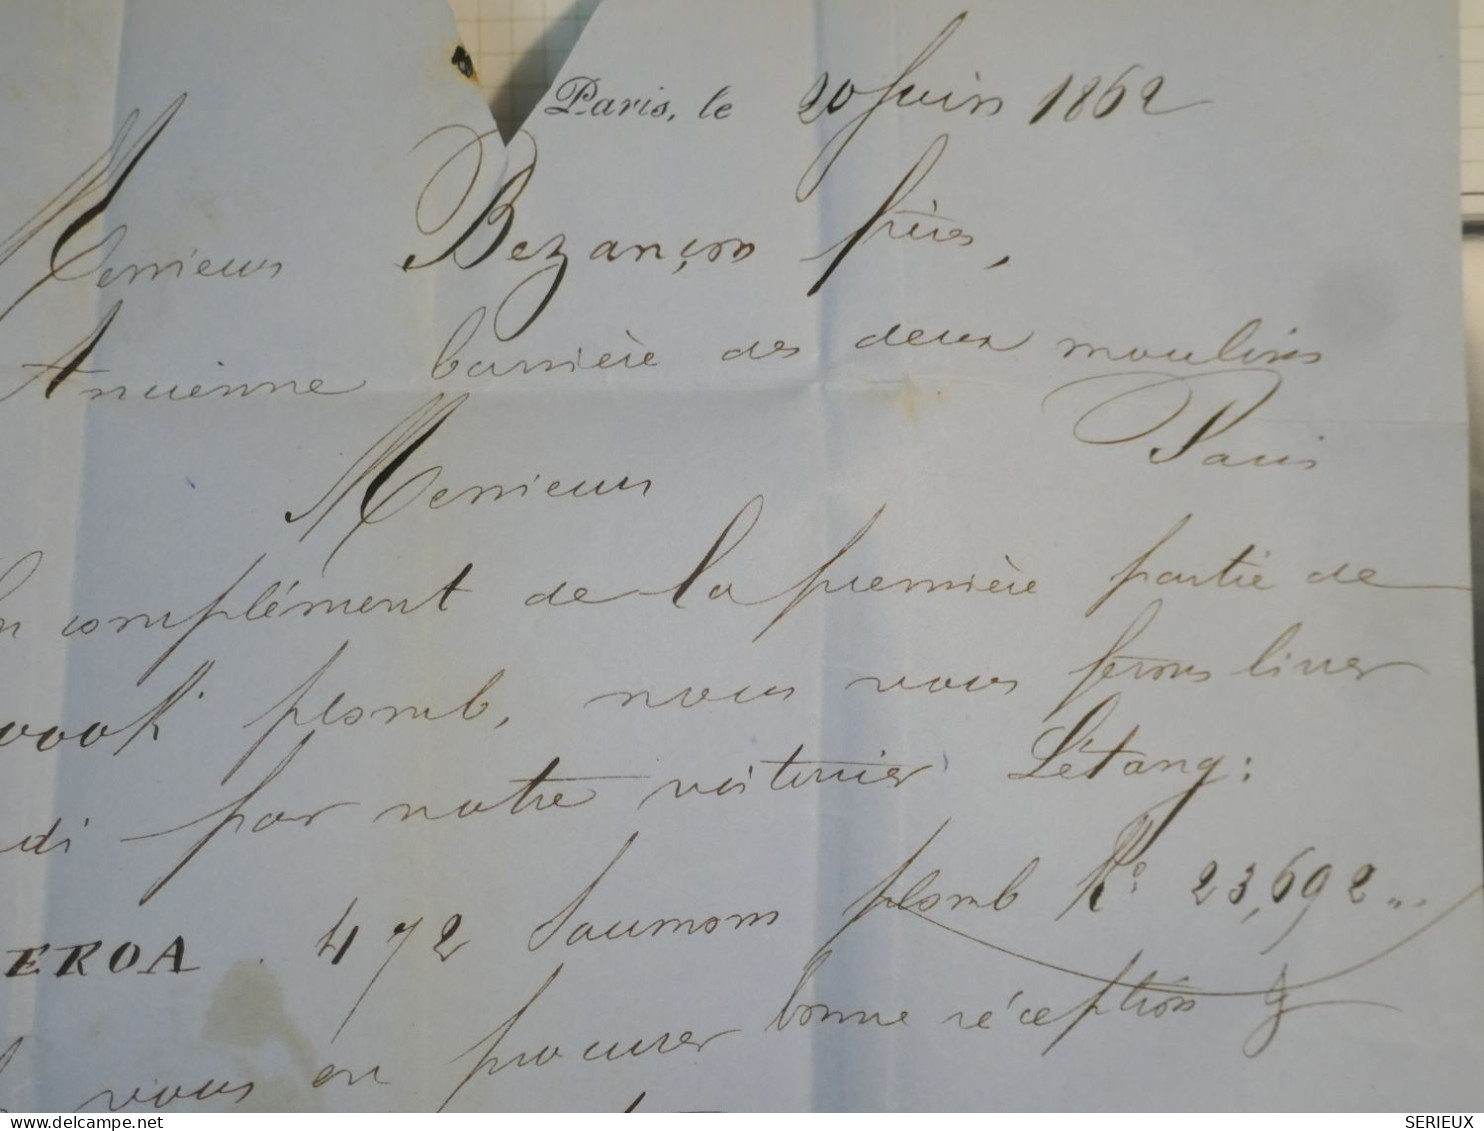 Paris, le 20 Juin 1862
Messieurs Bezançon frères,
Ancienne barrière des deux moulins
Paris
Messieurs
complément de la première partie de
plomb, nous vous ferons livrer
di par notre voiturier Létang :
EROA. 472 Saumons plomb K° 23,692 "..
vous en procurer bonne réception &
SERIEUX